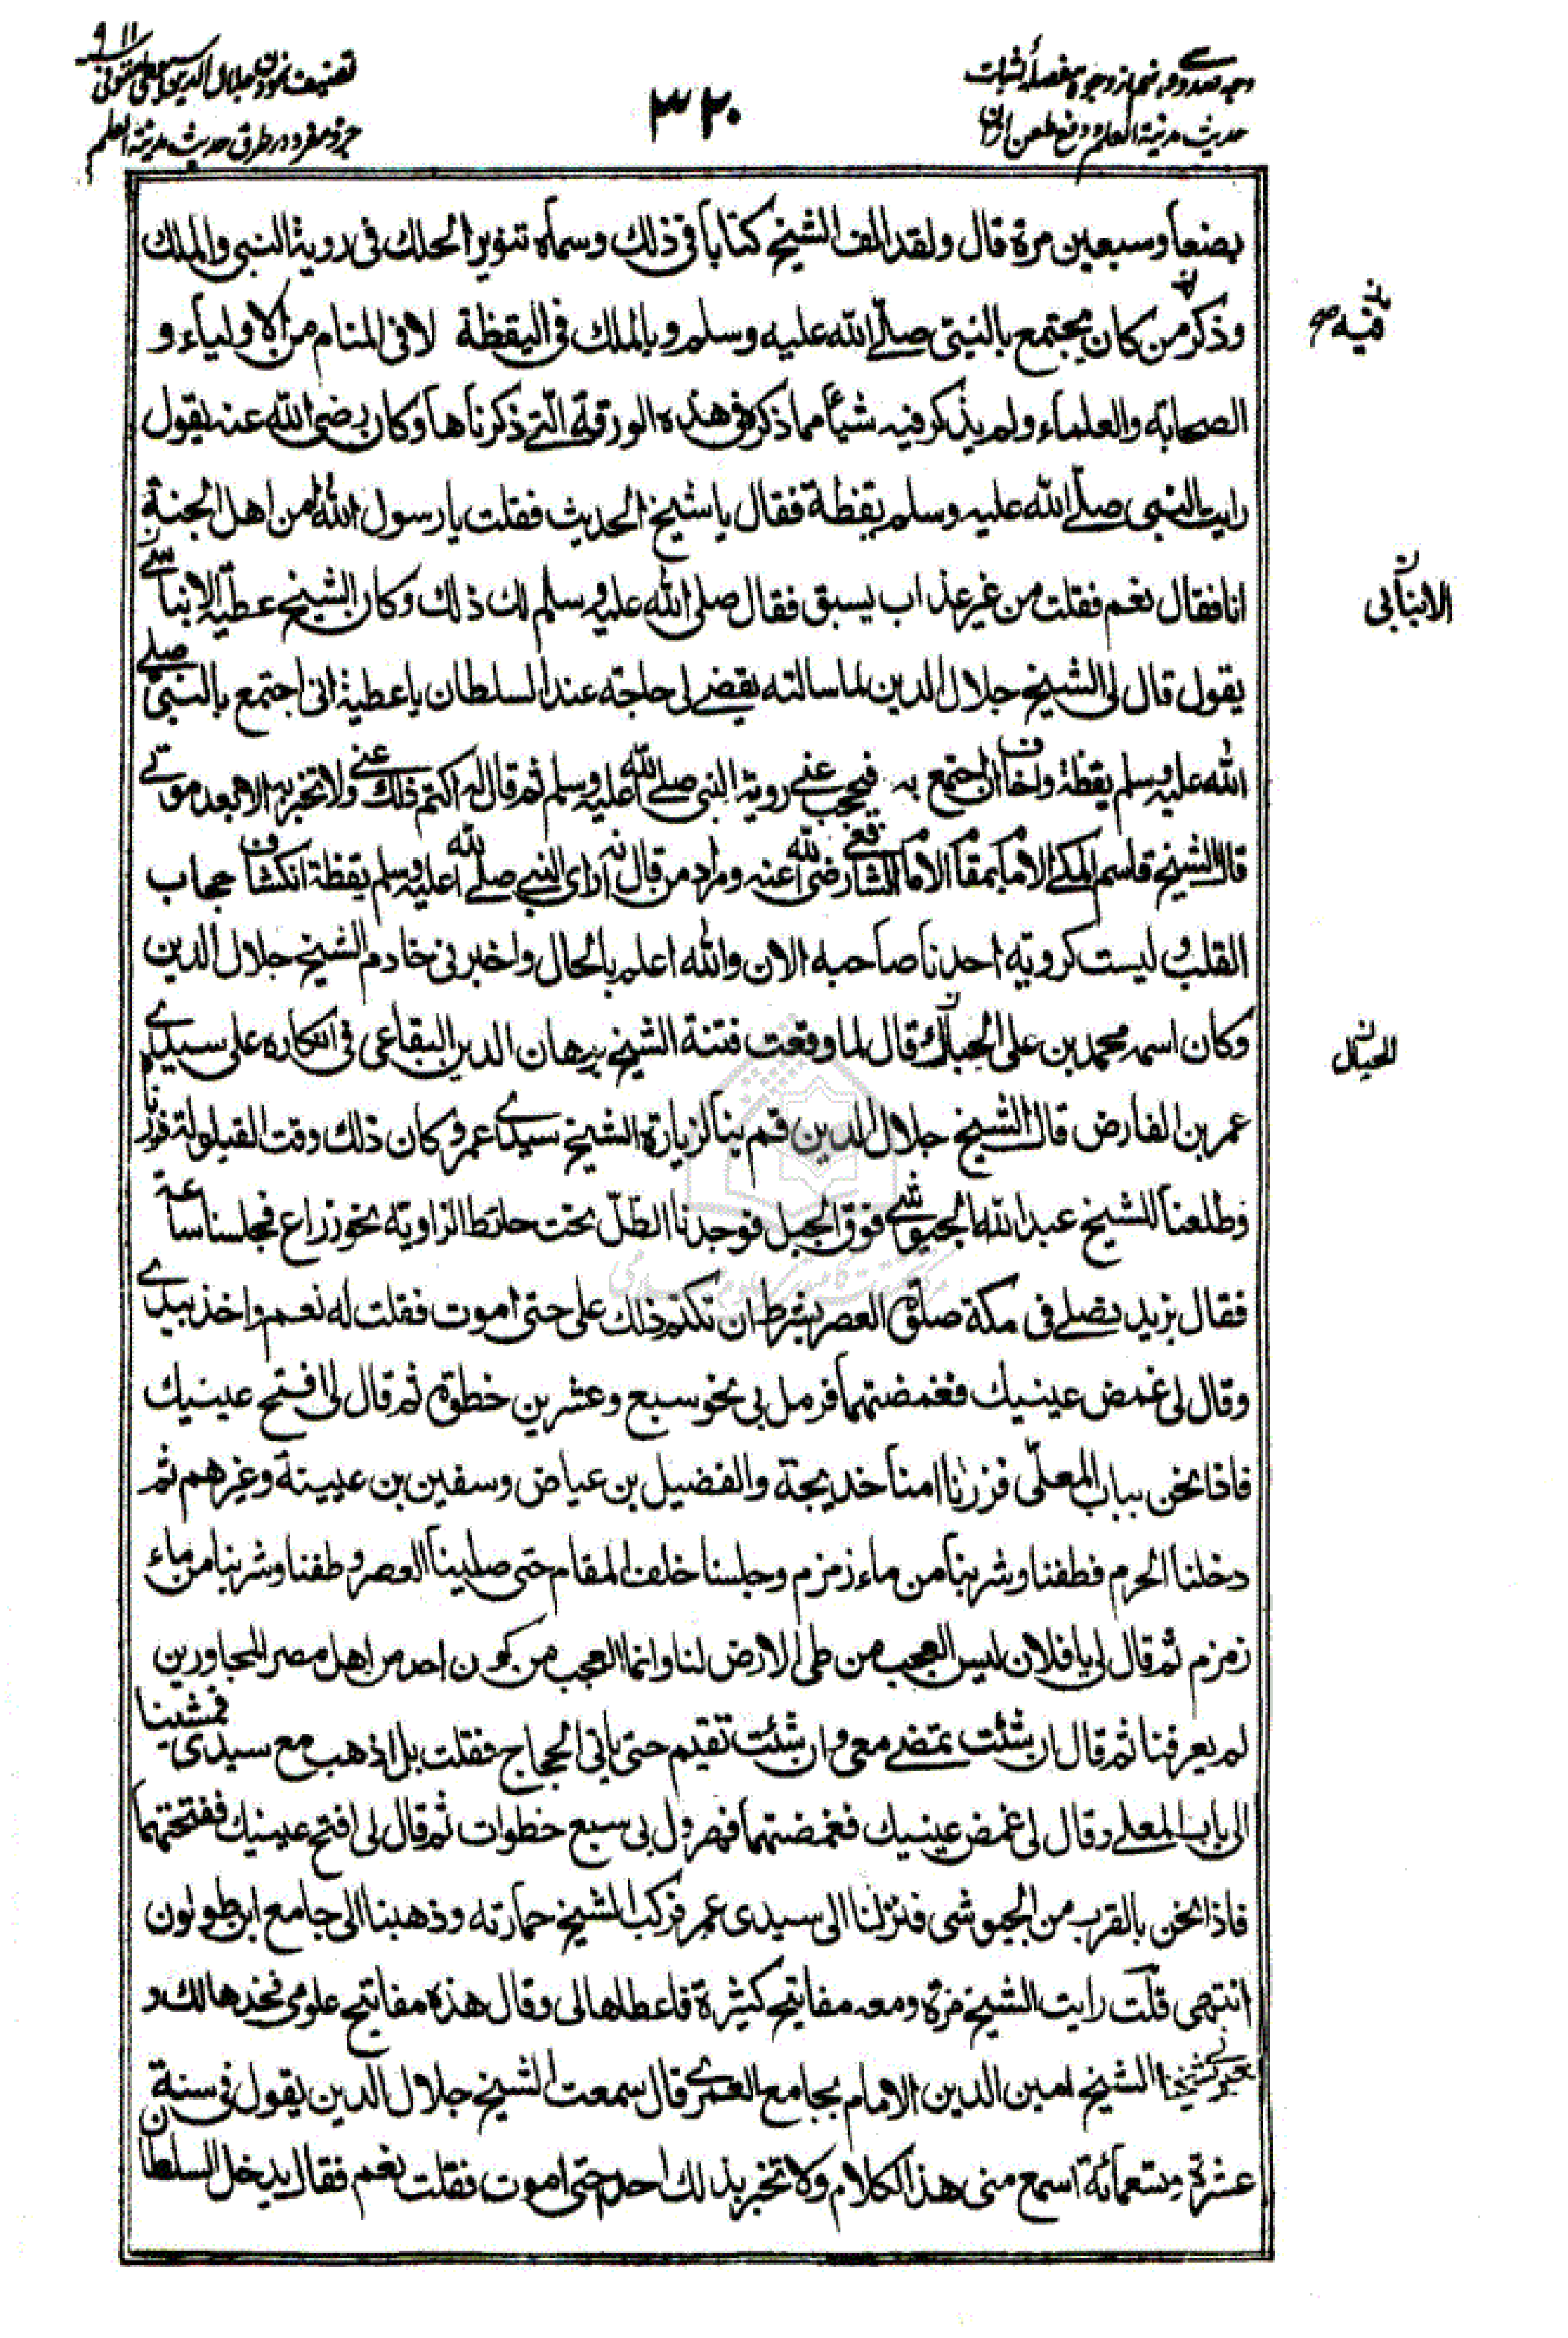 وجه صد و نهم از وجوه مفصله اثبات
حديث مدينة العلم و دفع طعن
٣٢٠
تصنيف نمودن جلال الدين سيوطى المتوفى ٩١١
جزو مفرد در طرق حديث مدينة العلم
بضعاً وسبعين مرة قال ولقد الف الشيخ كتاباً فى ذلك وسماه تنوير الحلك فى روية النبى والملك
وذكر من كان يجتمع بالنبىّ صلّے الله عليه وسلم وبالملك فى اليقظة لا فى المنام من الاولياء و
الصحابة والعلماء ولم يذكر فيه شيأ مما ذكره فى هذه الورقة الّتے ذكرناها وكان رضى الله عنه يقول
رايت النبى صلّے الله عليه وسلم يقظة فقال يا شيخ الحديث فقلت يا رسول الله امن اهل الجنة
انا فقال نعم فقلت من غير عذاب يسبق فقال صلى الله عليه وسلم لك ذلك وكان الشيخ عطية الابناسے
يقول قال لى الشيخ جلال الدين لما سالته يقضے لى حاجة عند السلطان يا عطية انى اجتمع بالنبىّ صلے
الله عليه وسلم يقظة واخاف ان اجتمع به فيحجب عنے روية النبى صلے الله عليه وسلم ثم قال له اكتم ذلك عنے ولا تخبر به الا بعد موتے
قال الشيخ قاسم المكے الامام بمقام الامام الشافعے رضى الله عنه ومراد من قال انه راى النبى صلے الله عليه وسلم يقظة انكشاف حجاب
القلب و ليست كروية احدنا صاحبه الان والله اعلم بالحال واخبرنى خادم الشيخ جلال الدين
وكان اسمه محمد بن على الحباك قال لما وقعت فتنة الشيخ برهان الدين البقاعى فى انكاره على سيدے
عمر بن الفارض قال الشيخ جلال الدين قم بنا لزيارة الشيخ سيدے عمر وكان ذلك وقت القيلولة فزرنا
وطلعنا للشيخ عبد الله الجيوشے فوق الجبل فوجدنا الظلّ تحت حائط الزاوية نحو ذراع فجلسنا ساعة
فقال نريد نصلے فى مكة صلوة العصر بشرط ان تكتم ذلك على حتى اموت فقلت له نعم واخذ بيدے
وقال لى غمض عينيك فغمضتهما فرمل بى نحو سبع وعشرين خطوة ثم قال لى افتح عينيك
فاذا نحن بباب المعلّى فزرنا امنا خديجة والفضيل بن عياض وسفين بن عيينة وغيرهم ثم
دخلنا الحرم فطفنا وشربنا من ماء زمزم وجلسنا خلف المقام حتى صلينا العصر وطفنا وشربنا من ماء
زمزم ثم قال لى يا فلان ليس العجب من طى الارض لنا وانما العجب من كون احد من اهل مصر المجاورين
لم يعرفنا ثم قال ان شئت تمضے معى وان شئت تقيم حتى ياتى الحجاج فقلت بل اذهب مع سيدى فمشينا
الى باب المعلے وقال لى غمض عينيك فغمضتهما فهرول بى سبع خطوات ثم قال لى افتح عينيك ففتحتهما
فاذا نحن بالقرب من الجيوشى فنزلنا الى سيدى عمر فركب الشيخ حمارته وذهبنا الى جامع ابن طولون
انتهى قلت رايت الشيخ مرة ومعه مفاتيح كثيرة فاعطاها لى وقال هذه مفاتيح علومى فخذها لك و
الشيخ امين الدين الامام بجامع الغمرے قال سمعت الشيخ جلال الدين يقول فى سنة
عشرة وتسعمائة اسمع منى هذا الكلام ولا تخبر بذلك احد حتى اموت فقلت نعم فقال يدخل السلطان
فيه صح
الابنابى
الحبال